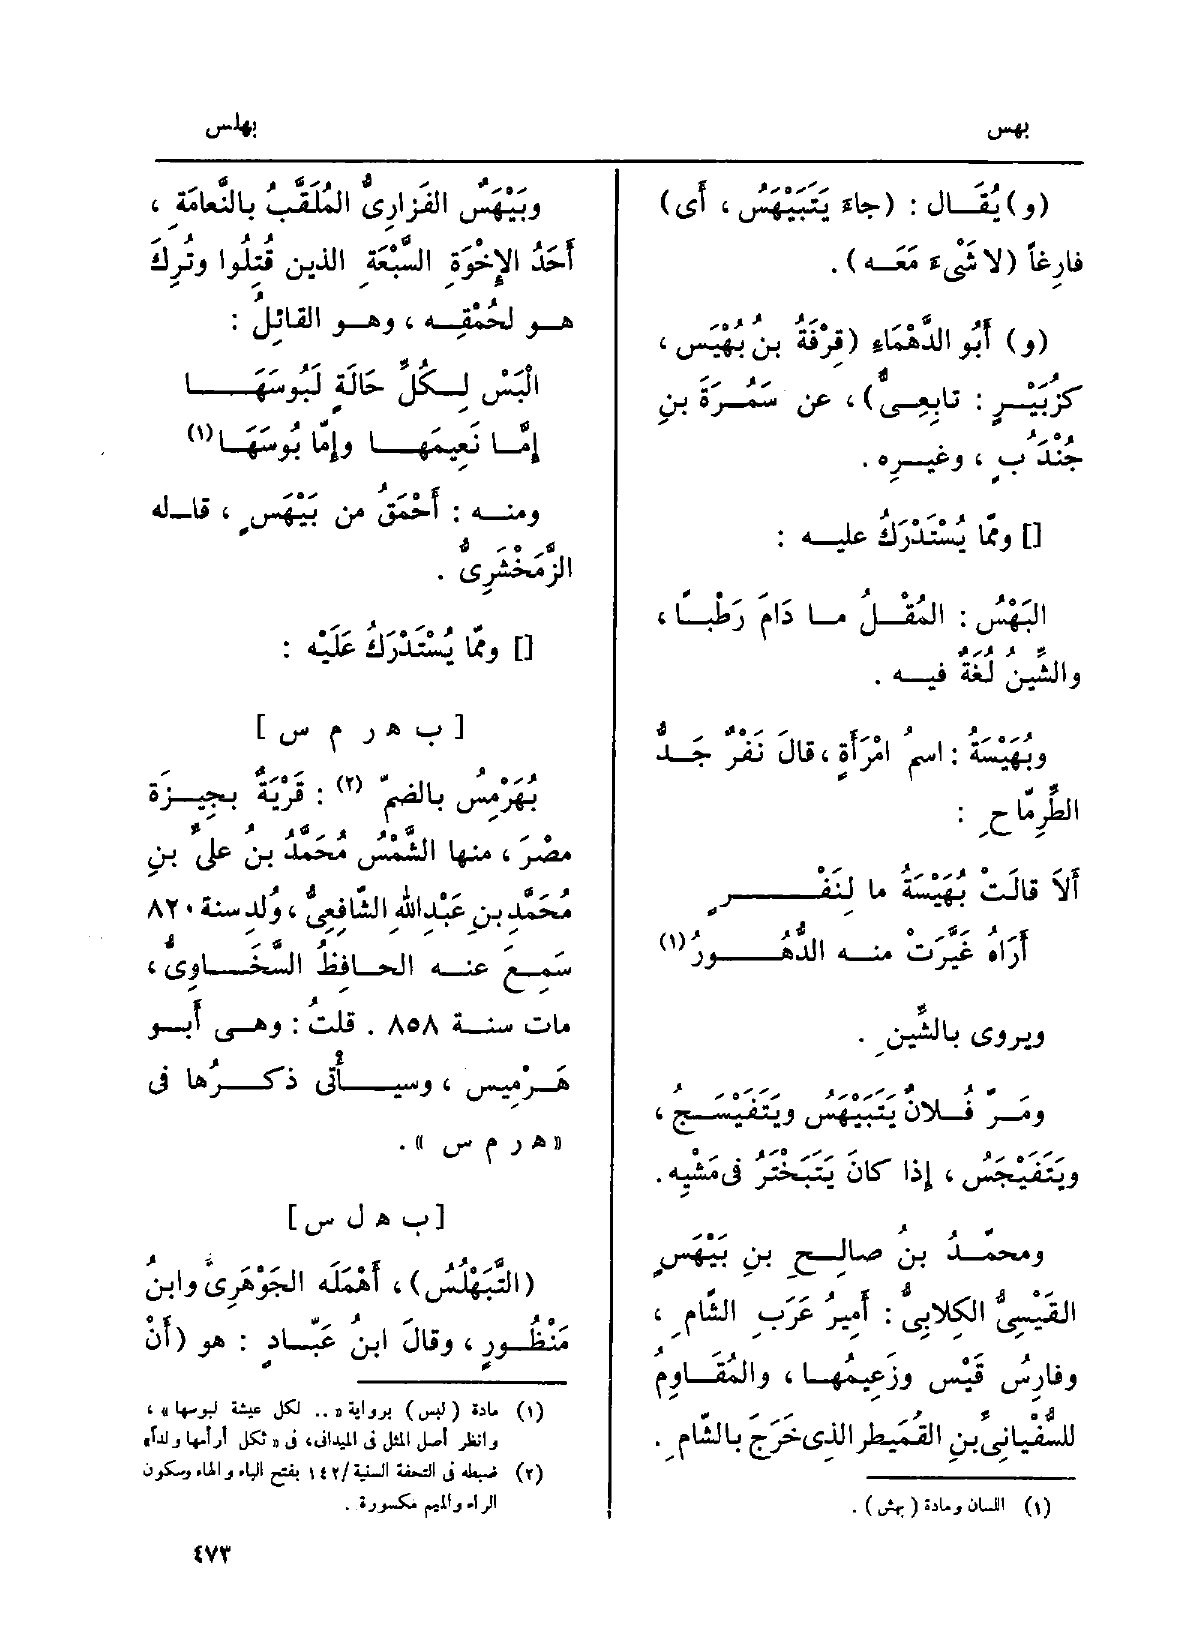 بهس
بهلس
(و) يُقَـال : (جاءَ يَتَبَيْهَسُ ، أَى)
فارِغاً (لا شَىْءَ مَعَـه) .
(و) أَبُو الدَّهْمَاءِ (قِرْفَةُ بنُ بُهَيْس ،
كزُبَيْـرٍ : تابِعِـىٌّ) ، عن سَمُـرَةَ بنِ
جُنْدُبٍ ، وغيـرِه .
[] ومّا يُسْتَدْرَكُ عليـه :
البَهْسُ : المُقْـلُ مـا دَامَ رَطْبـاً ،
والشِّينُ لُغَةٌ فيـه .
وبُهَيْسَةُ : اسمُ امْرَأَةٍ ، قالَ نَفْرٌ جَـدُّ
الطِّرِمّاحِ :
أَلاَ قالَتْ بُهَيْسَةُ ما لِنَفْـرٍ
أَرَاهُ غَيَّرَتْ منـه الدُّهُـورُ (١)
ويروى بالشِّينِ .
ومَـرَّ فُـلانٌ يَتَبَيْهَسُ ويَتَفَيْسَـجُ ،
ويَتَفَيْجَسُ ، إذا كانَ يَتَبَخْتَرُ فى مَشْيِه .
ومحمّـدُ بنُ صالِـحِ بنِ بَيْهَسٍ
القَيْسِىُّ الكِلابِىُّ : أَمِيرُ عَرَبِ الشّامِ ،
وفارِسُ قَيْسٍ وزَعِيمُهـا ، والمُقَـاوِمُ
للسُّفْيانِىِّ بنِ القُمَيطر الذى خَرَجَ بالشّامِ .
(١) اللسان ومادة (بهش) .
وبَيْهَسٌ الفَزارِىُّ المُلَقَّبُ بالنَّعامَةِ ،
أَحَدُ الإِخْوَةِ السَّبْعَةِ الذين قُتِلُوا وتُرِكَ
هـو لحُمْقِـه ، وهـو القائلُ :
الْبَسْ لِـكُلِّ حَالَةٍ لَبُوسَهَـا
إِمَّـا نَعِيمَهـا وإِمَّا بُوسَهَـا (١)
ومنـه : أَحْمَقُ من بَيْهَسٍ ، قالـه
الزَّمَخْشَرِىُّ .
[] ومّا يُسْتَدْرَكُ عَلَيْه :
[ ب هـ ر م س ]
بُهَرْمِسُ بالضمّ (٢) : قَرْيَةٌ بـجِيـزَة
مصْرَ ، منها الشَّمْسُ مُحَمَّدُ بنُ علىِّ بنِ
مُحَمَّدِ بنِ عَبْدِ اللهِ الشّافِعِىُّ ، وُلِد سنة ٨٢٠
سَمِـعَ عنـه الحـافِظُ السَّخَـاوِىُّ ،
مات سنـة ٨٥٨ . قلتُ : وهـى أَبـو
هَـرْمِيس ، وسيـأْتى ذكـرُها فى
« هـ ر م س » .
[ ب هـ ل س ]
(التَّبَهْلُسُ) ، أَهْمَلَه الجَوْهَرِىُّ وابنُ
مَنْظُـورٍ ، وقالَ ابنُ عَبّـادٍ : هو (أَنْ
(١) مادة (لبس) برواية « .. لكل عيشة لبوسها » ،
وانظر أصل المثل فى الميدانى ، فى « ثكل أرأمها ولداً »
(٢) ضبطه فى التحفة السنية /١٤٢ بفتح الباء والهاء وسكون
الراء والميم مكسورة .
٤٧٣